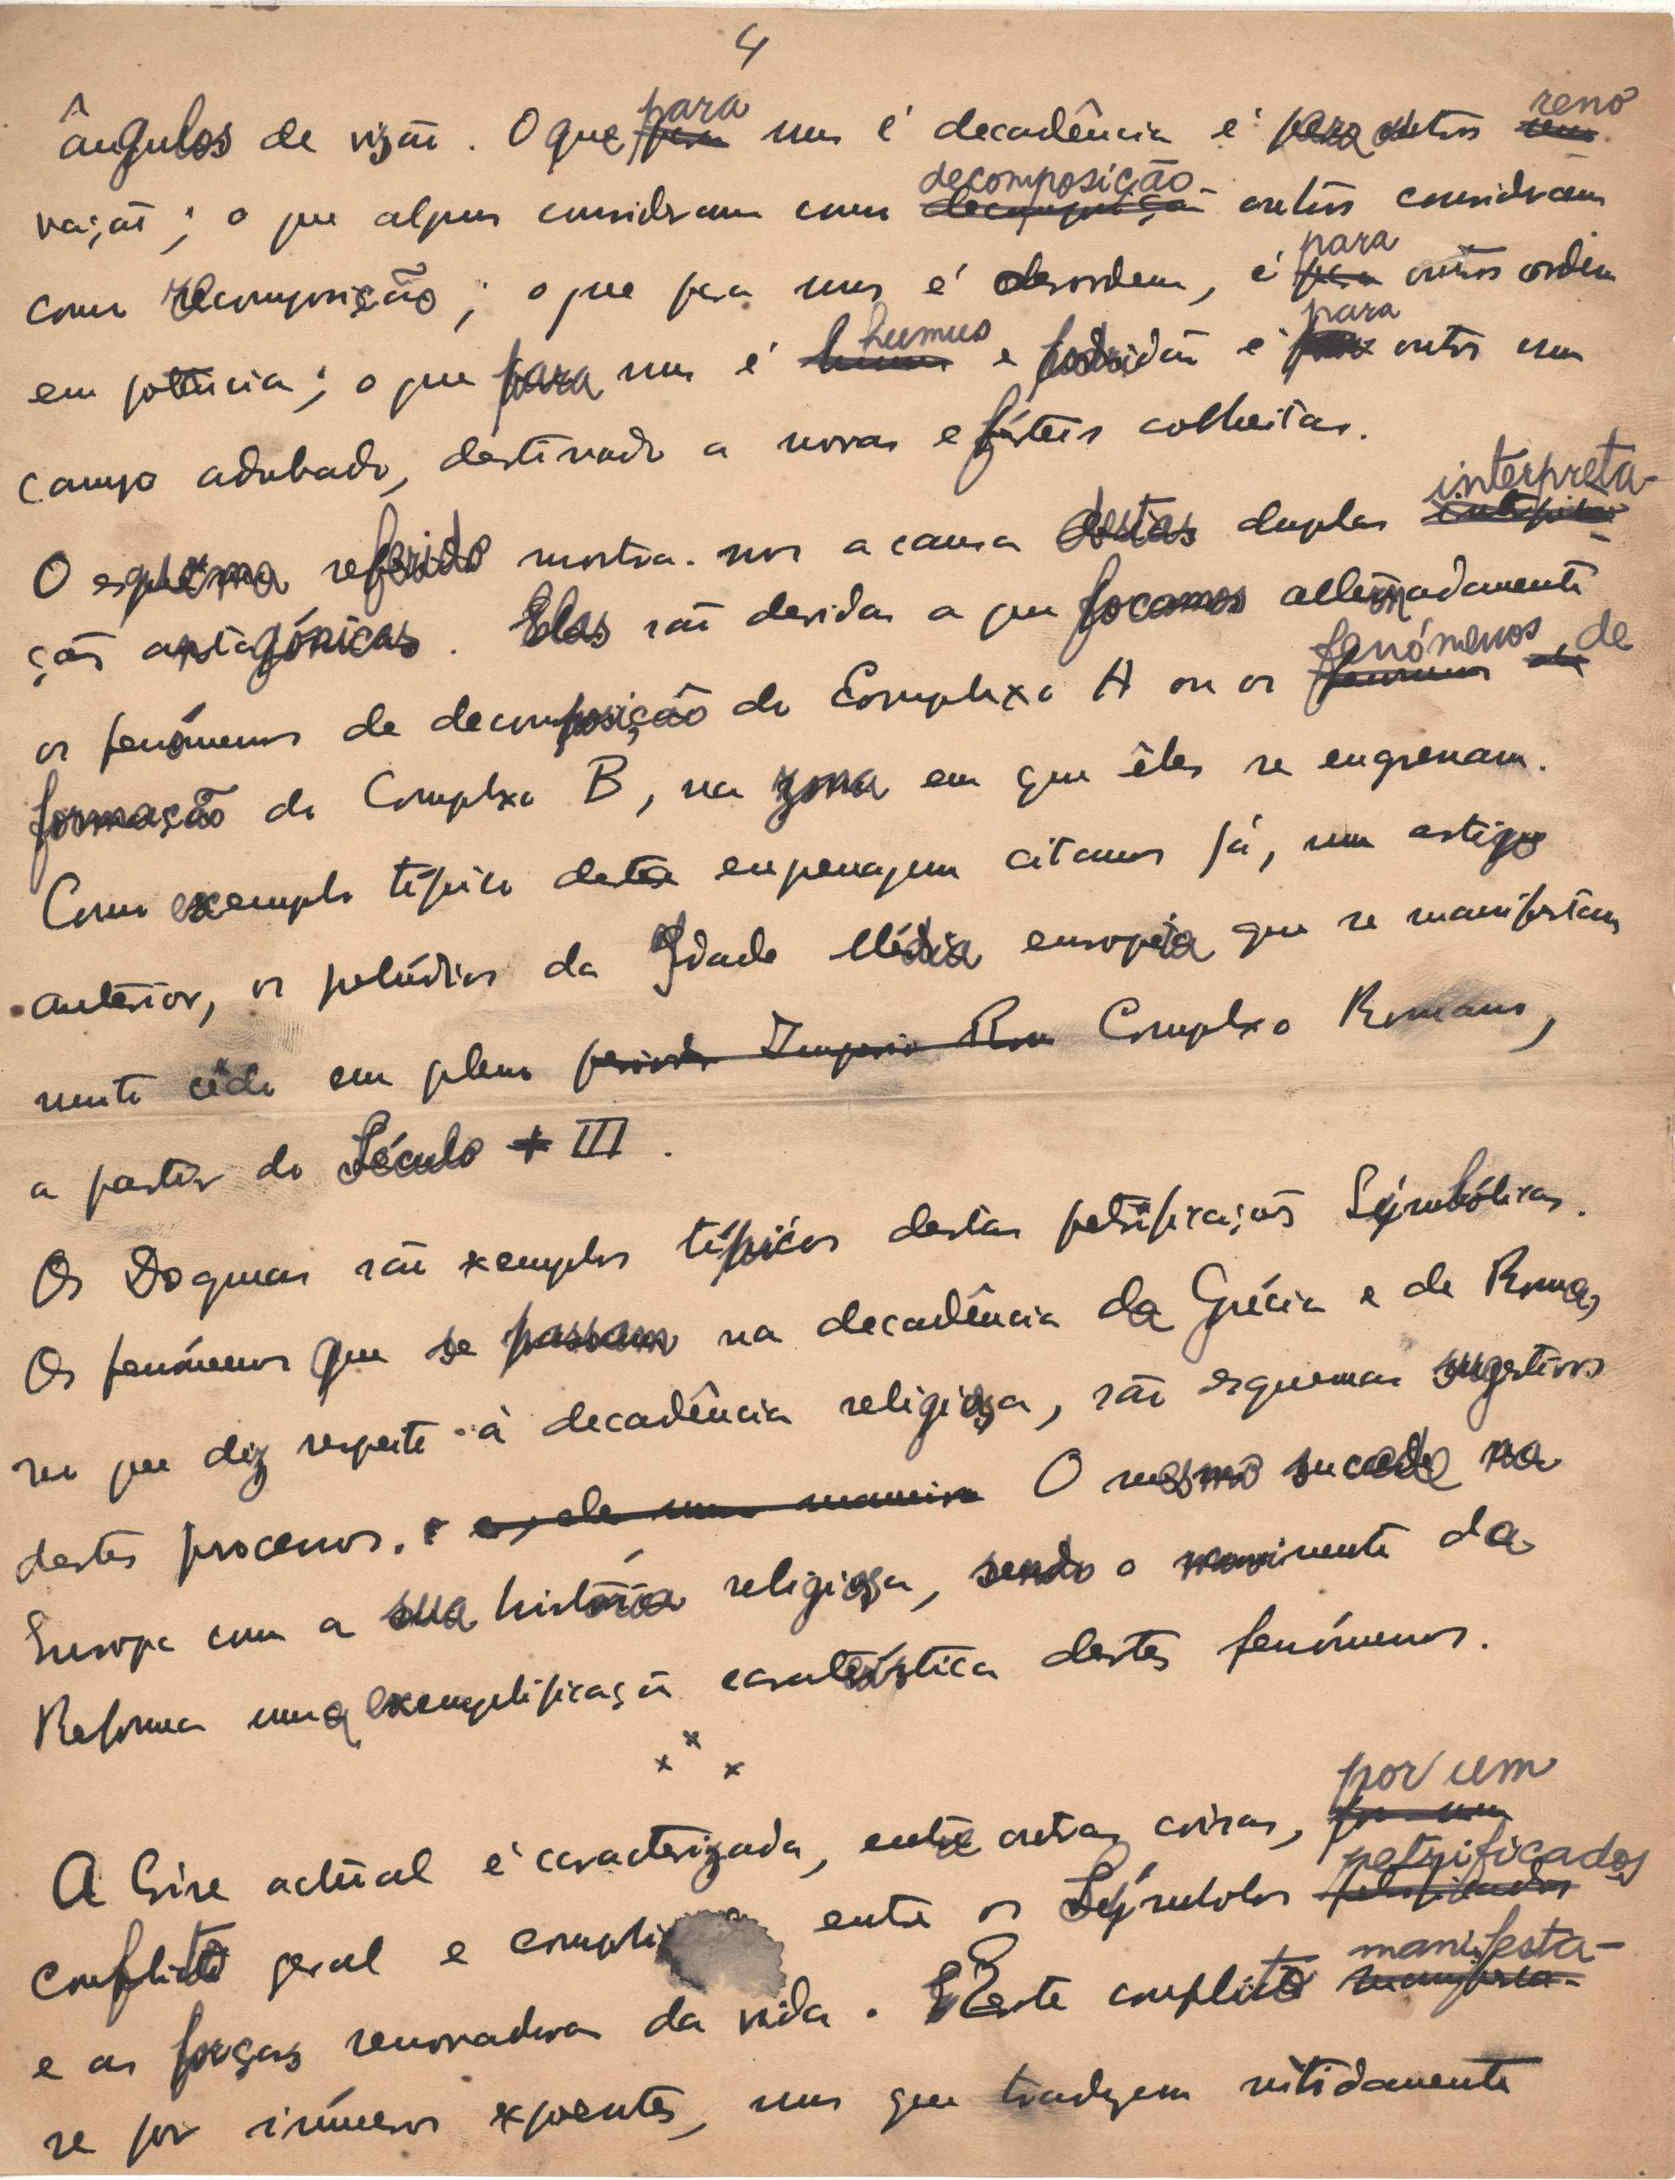 4
ângulos de visão. O que para uns é decadência é para outros reno
vação; o que alguns consideram como decomposição outros consideram
como recomposição; o que para uns é desordem, é para outros ordem
em potência; o que para uns é humus e podridão é para outros um
campo adubado, destinado a novas e férteis colheitas.
O esquema referido mostra-nos a causa destas duplas interpreta-
ções antagónicas. Elas são devidas a que focamos alternadamente
os fenómenos de decomposição do Complexo A ou os fenómenos de
formação do Complexo B, na zona em que êles se engrenam.
Como exemplo típico desta engrenagem citamos já, num artigo
anterior, os prelúdios da Idade Média europeia que se manifestam
muito cêdo em pleno periodo Imperio Rom Complexo Romano,
a partir do Século + III.
Os Dogmas são exemplos típicos destas petrificações Símbólicas.
Os fenómenos que se passam na decadência da Grécia e de Roma,
no que diz respeito à decadência religiosa, são esquemas sugestivos
destes processos. e, de uma maneira O mesmo sucede na
Europa com a sua história religiosa, sendo o movimento da
Reforma uma exemplificação caraterística destes fenómenos.
x x x
A Crise actual é caracterizada, entre outras coisas, por um
conflito geral e entre os Símbolos petrificados
e as forças renovadoras da vida. Este conflito manifesta-
se por inúmeros expoentes, uns que traduzem nitidamente